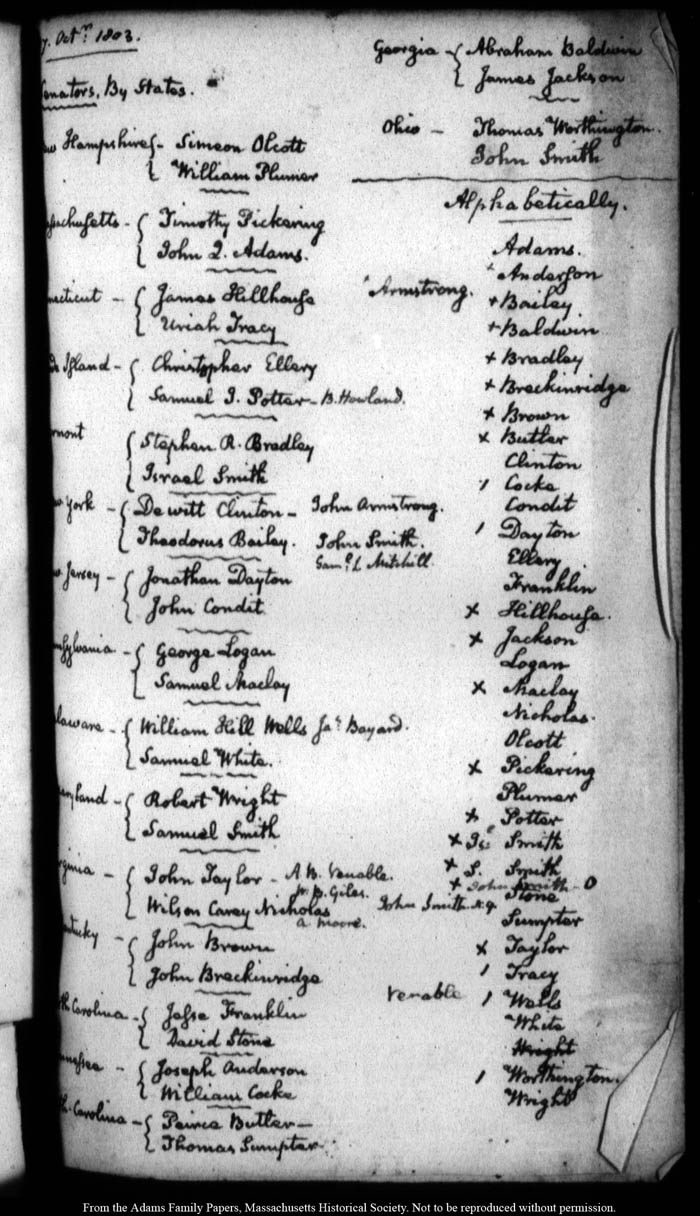 7. Octr. 1803.
enators, By States.
w Hampshire {- Simeon Olcott
William Plumer
ssachusetts - { Timothy Pickering
John Q. Adams.
necticut - { James Hillhouse
Uriah Tracy
de Island - { Christopher Ellery
Samuel J. Potter - B. Howland.
rmont { Stephen R. Bradley
Israel Smith
w York - { Dewitt Clinton - John Armstrong.
Theodorus Bailey. John Smith.
Saml. L Mitchill.
w Jersey - { Jonathan Dayton
John Condit
nsylvania - { George Logan
Samuel Maclay
laware - { William Hill Wells Jas. Bayard.
Samuel White.
aryland - { Robert Wright
Samuel Smith
rginia - { John Taylor - A. B. Venable.
W. B. Giles.
Wilson Carey Nicholas
A. Moore.
ntucky { John Brown
John Breckinridge
th Carolina - { Jesse Franklin
David Stone
nnessee - { Joseph Anderson
William Cocke
th. Carolina - { Peirce Butler -
Thomas Sumpter
Georgia - { Abraham Baldwin
James Jackson
Ohio - Thomas Worthington.
John Smith
Alphabetically.
Adams.
Anderson
Armstrong.
+ Bailey
+ Baldwin
+ Bradley
+ Breckinridge
+ Brown
x Butler
Clinton
/ Cocke
Condit
/ Dayton
Ellery
Franklin
x Hillhouse.
x Jackson
Logan
x Maclay
Nicholas.
Olcott
x Pickering
Plumer
x Potter
x Is. Smith
x S. Smith
+ John Smith - O
John Smith N.Y. Stone
Sumpter
x Taylor
/ Tracy
Venable / Wells
White
Wright
/ Worthington.
Wright
From the Adams Family Papers, Massachusetts Historical Society. Not to be reproduced without permission.